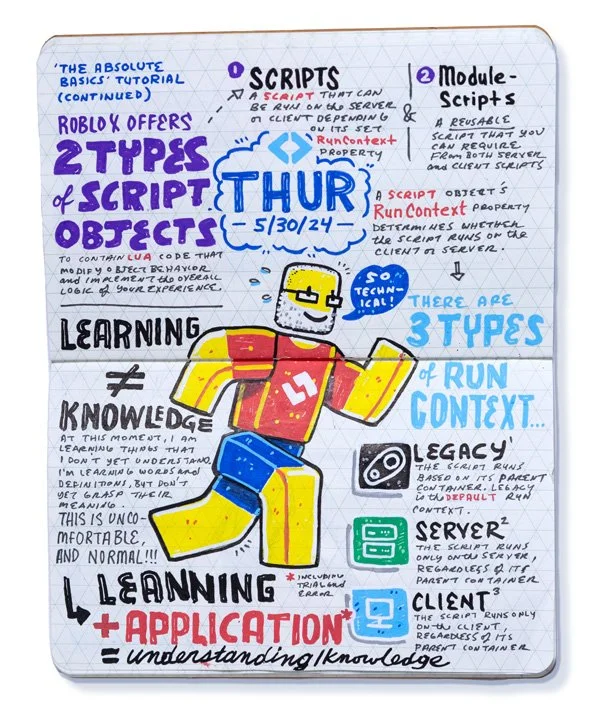 'THE ABSOLUTE
BASICS' TUTORIAL
(CONTINUED)
ROBLOX OFFERS
2 TYPES
of SCRIPT
OBJECTS
TO CONTAIN LUA CODE THAT
MODIFY OBJECT BEHAVIOR
and IMPLEMENT the OVERALL
LOGIC of YOUR EXPERIENCE.
1 SCRIPTS
A SCRIPT THAT CAN
BE RUN ON the SERVER
or CLIENT DEPENDING
ON ITS SET
RunContext
PROPERTY
&
2 Module-
Scripts
A REUSABLE
SCRIPT THAT YOU
CAN REQUIRE
FROM BOTH SERVER
and CLIENT SCRIPTS
THUR
- 5/30/24 -
A SCRIPT OBJECT'S
RunContext PROPERTY
DETERMINES WHETHER
the SCRIPT RUNS on the
CLIENT or SERVER.
SO
TECHN-
ICAL!
THERE ARE
3 TYPES
of RUN
CONTEXT...
LEARNING
≠
KNOWLEDGE
AT THIS MOMENT, I AM
LEARNING THINGS THAT
I DON'T YET UNDERSTAND.
I'M LEARNING WORDS AND
DEFINITIONS, BUT DON'T
YET GRASP THEIR
MEANING.
THIS IS UNCO-
MFORTABLE,
AND NORMAL!!!
LEGACY 1
THE SCRIPT RUNS
BASED ON ITS PARENT
CONTAINER. LEGACY
is the DEFAULT RUN
CONTEXT.
SERVER 2
THE SCRIPT RUNS
ONLY on the SERVER,
REGARDLESS of ITS
PARENT CONTAINER
CLIENT 3
THE SCRIPT RUNS ONLY
ON the CLIENT,
REGARDLESS of ITS
PARENT CONTAINER
LEANNING
+ APPLICATION*
*INCLUDING
TRIAL and
ERROR
= understanding/knowledge